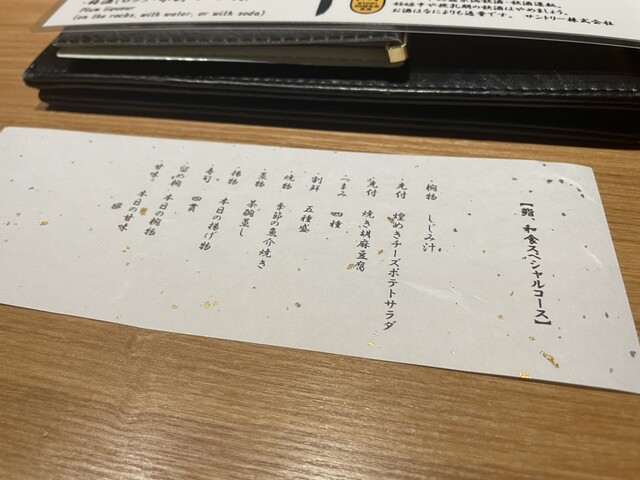 Plum liqueur
(on the rocks, with water, or with soda)
お酒はなによりも適量です。 サントリー株式会社
【鮨、和食スペシャルコース】
・椀物 しじみ汁
・先付 煌めきチーズポテトサラダ
・先付 焼き胡麻豆腐
・つまみ 四種
・割鮮 五種盛
・焼物 季節の魚介焼き
・蒸物 茶碗蒸し
・揚物 本日の揚げ物
・寿司 四貫
・留め椀 本日の椀物
・甘味 本日の甘味